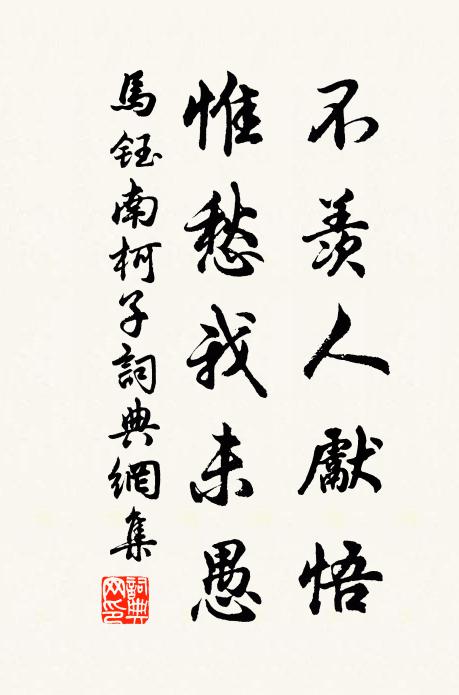 不羨人獻悟
惟愁我未愚
馬鈺南柯子詞典網集
詞典網印